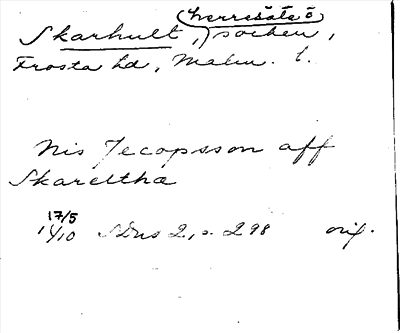 herresäte o
Skarhult, socken,
Frosta hd, Malm. l.
Nis Jecopsson aff
Skareltha
17/5
1410 SDns 2, s. 298 orig.